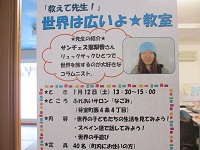 「教えて先生！」
世界は広いよ★教室
★先生の紹介★
サンチェス
リュックサックひとつで
世界を旅するのが大好きな
コラムニスト。
★と き 1月12日(土) 13:30～15:00
★ところ ふれあいサロン「なごみ」
★内 容 ・世界の子どもたちの生活を見てみよう!
・スペイン語で話してみよう!
・世界の手遊び
★定 員 40名